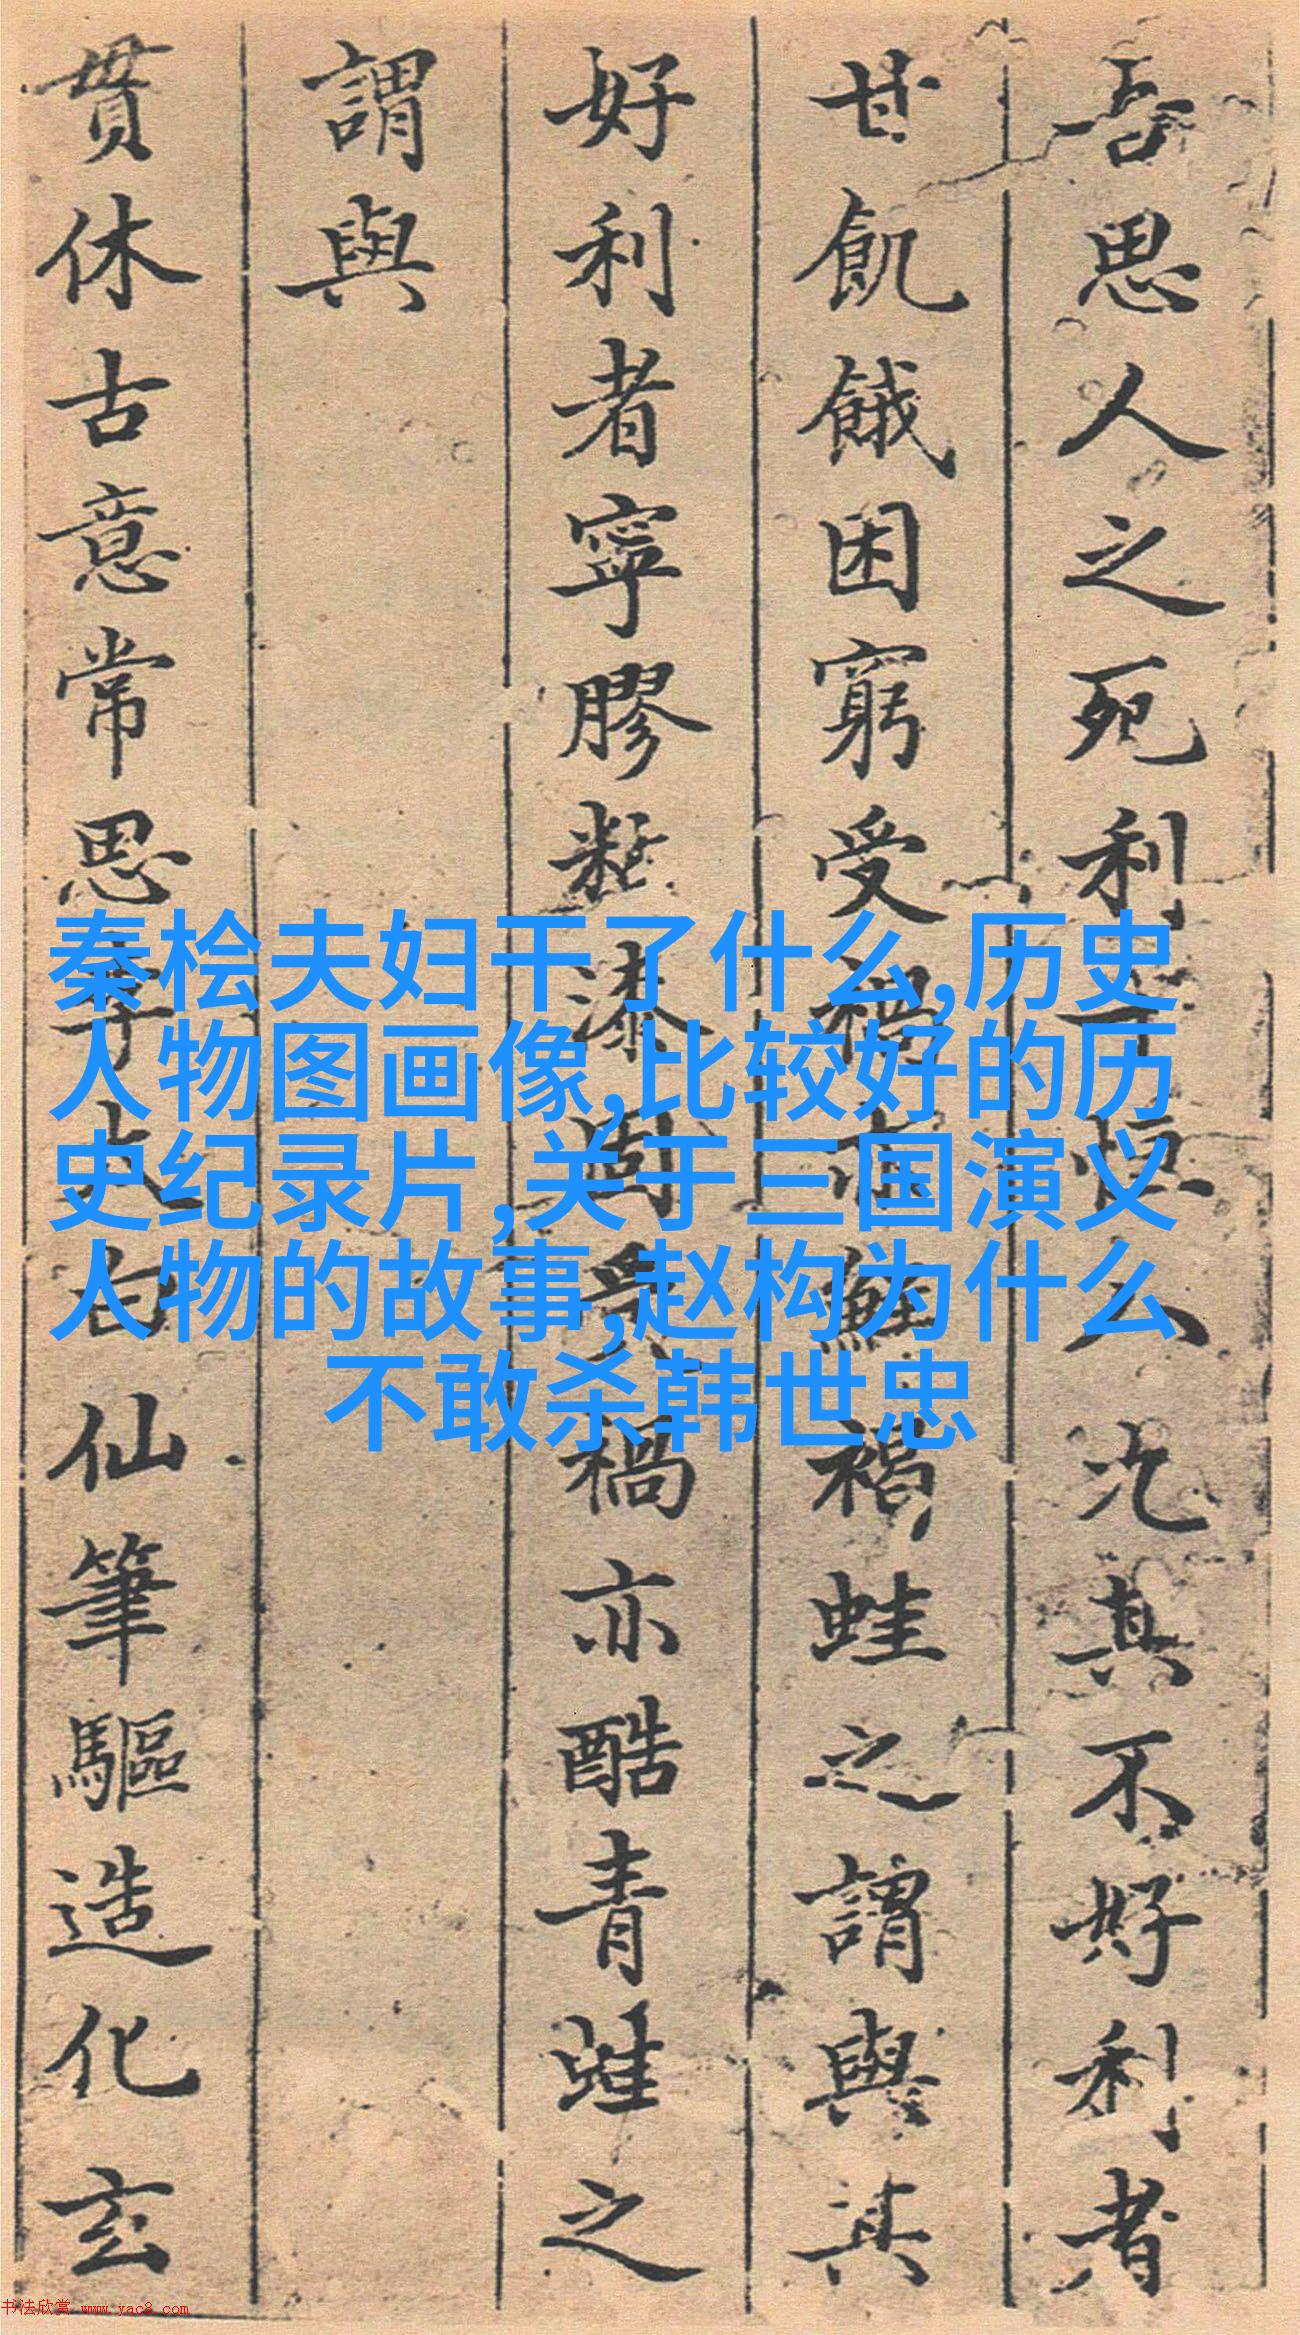 吾思人之死利
恒
況其不好利者
甘飢餓困窮受禍
褐蛙之謂與其
好利者寧膠
漆固
禍亦酷青蛙之
謂與
貫休古意常思李太白仙筆驅造化玄
秦桧夫妇干了什么,历史
人物图画像,比较好的历
史纪录片,关于三国演义
人物的故事,赵构为什么
不敢杀韩世忠
书法欣赏 www.yac8.com